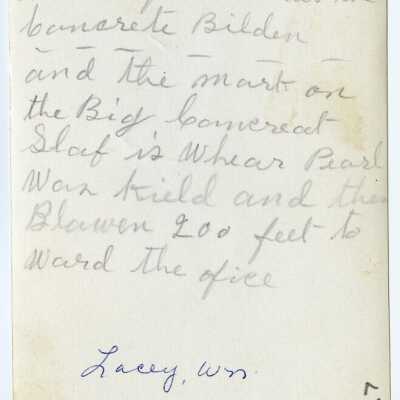 Concrete Bilden
and the mark on
the Big Concreat
Slaf is Whear Pearl
Was kield and then
Blawen 200 feet to
ward the ofice
Lacey, Wn.